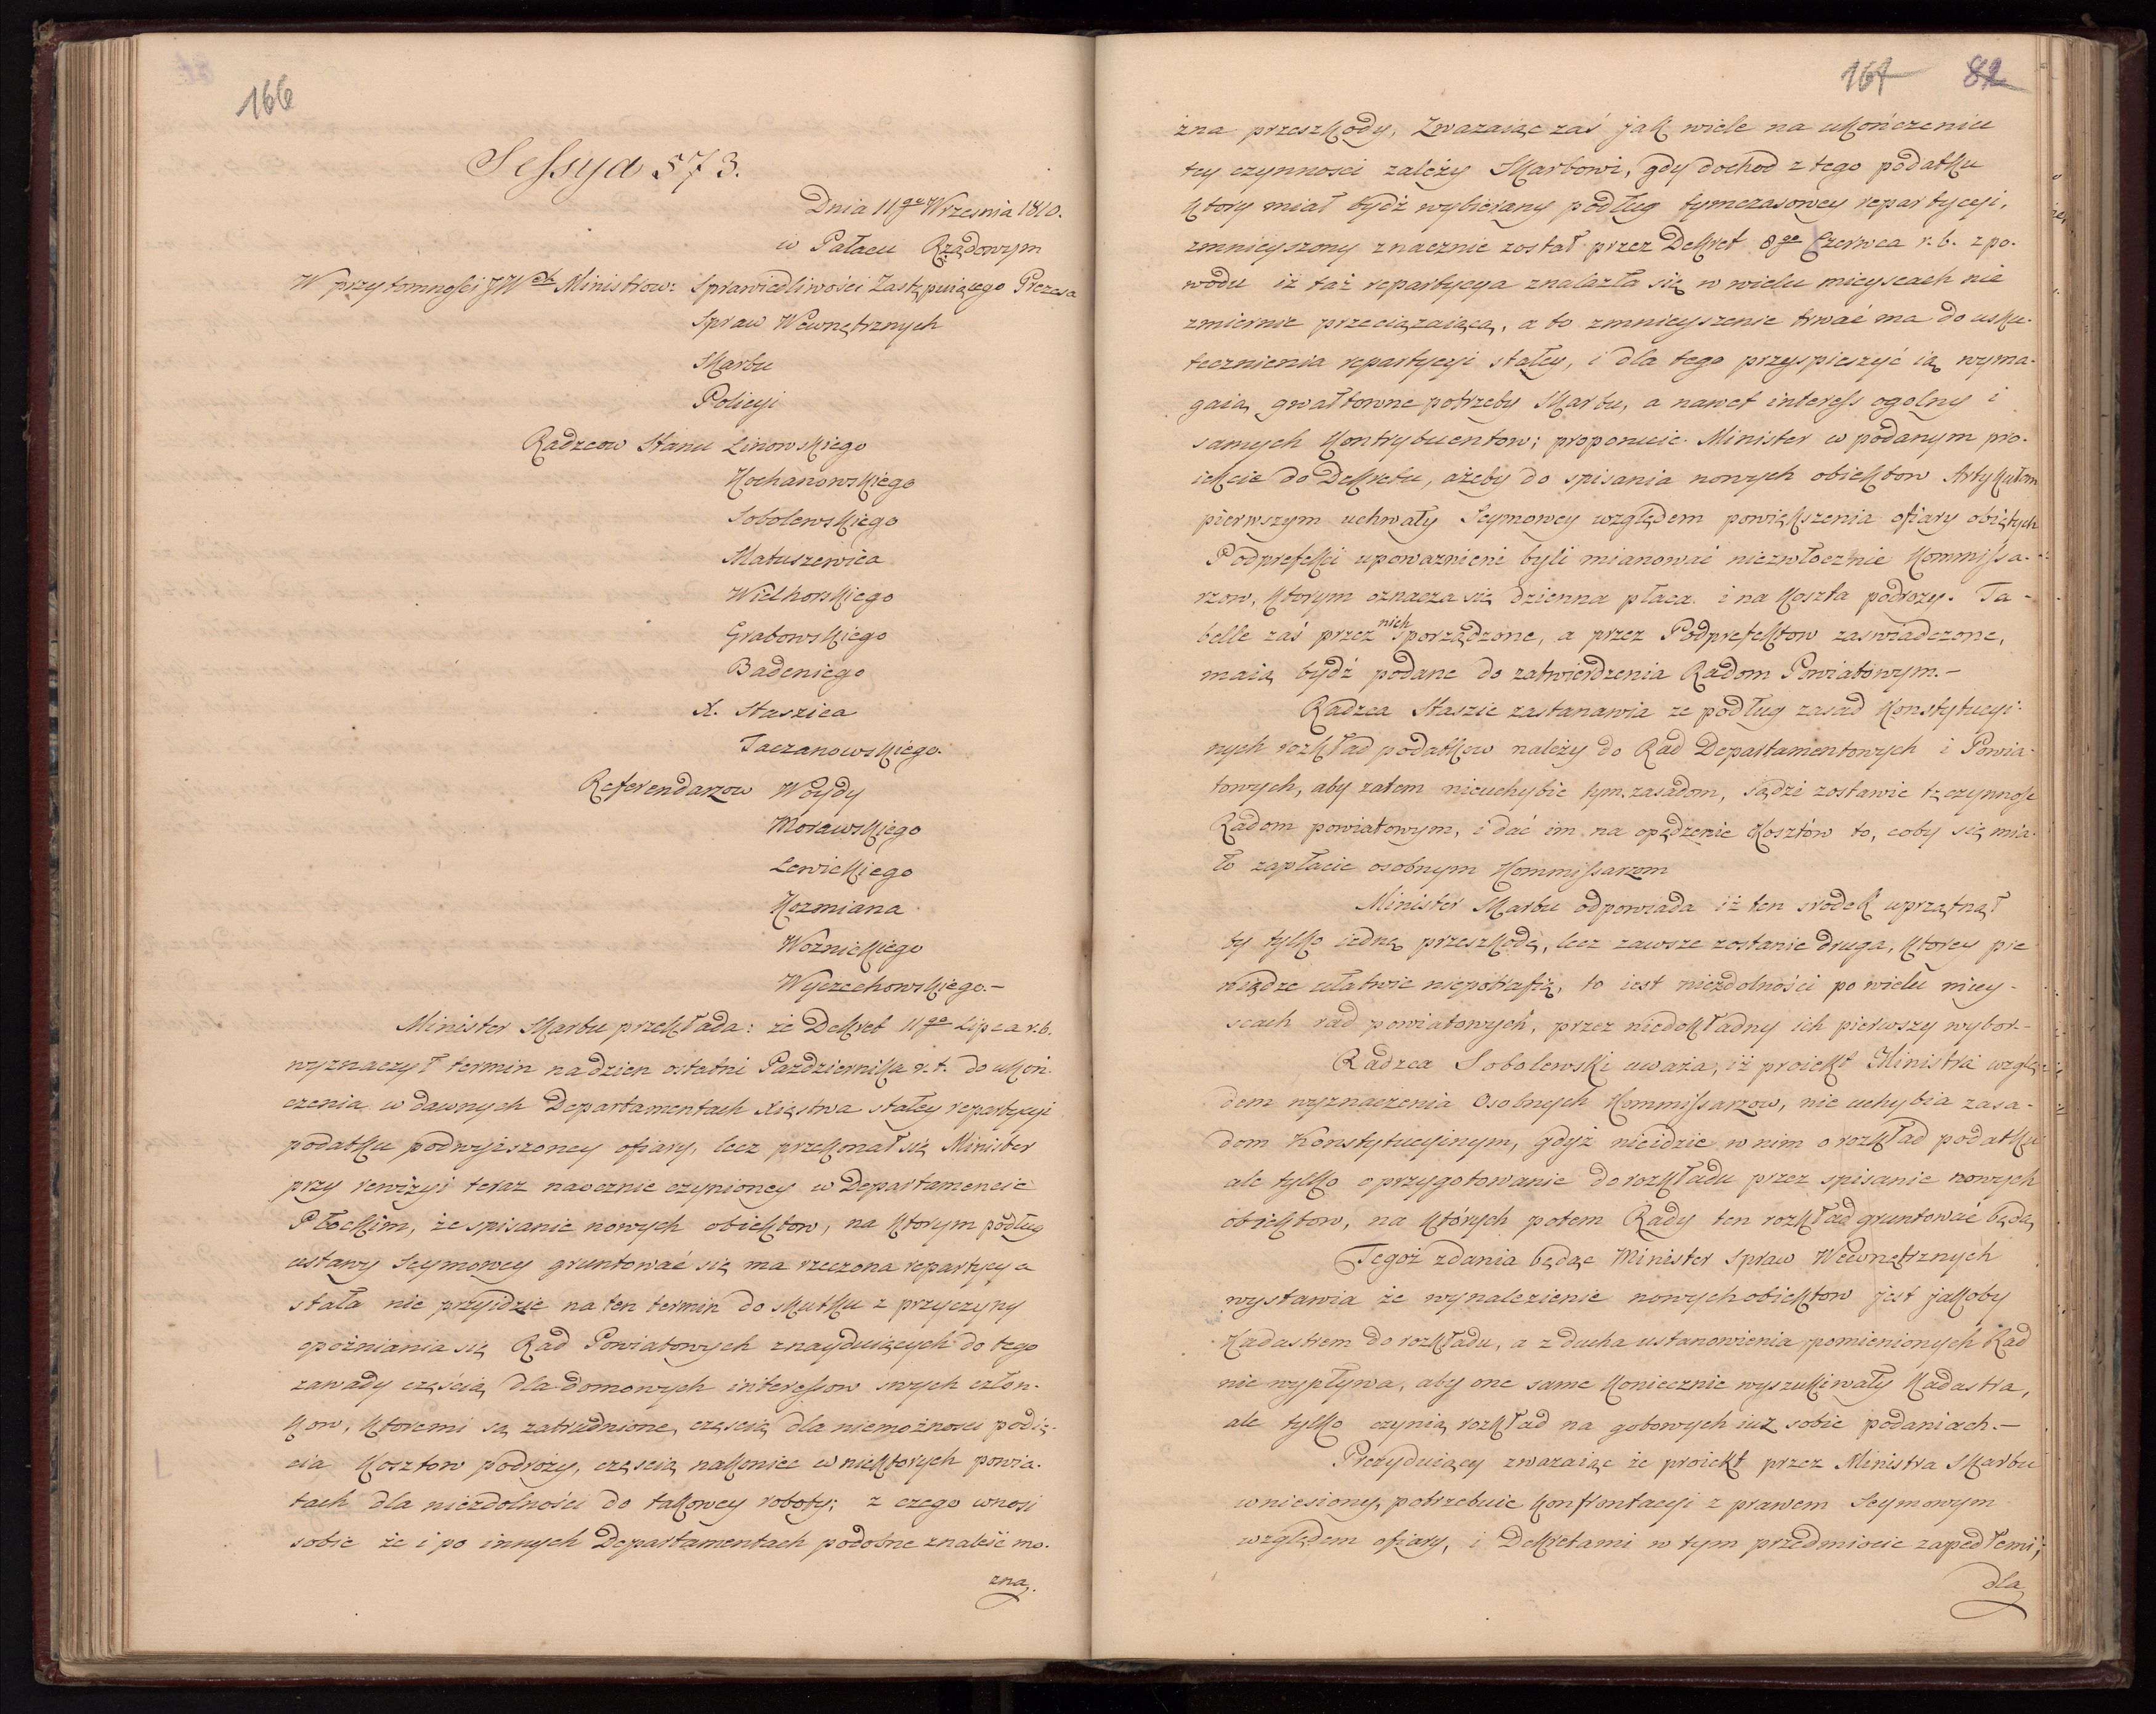 166
Sessya 573.
Dnia 11go Września 1810.
w Pałacu Rządowym
W przytomności JWch Ministrow: Sprawiedliwości Zastępuiącego Prezesa
Spraw Wewnętrznych
Skarbu
Policyi
Radzcow Stanu Linowskiego
Kochanowskiego
Sobolewskiego
Matuszewica
Wielhorskiego
Grabowskiego
Badeniego
X. Staszica
Taczanowskiego.
Referendarzow Woydy
Morawskiego
Lewickiego
Kozmiana
Woźnickiego
Wyczechowskiego.–
Minister Skarbu przekłada: że Dekret 11go Lipca r.b.
wyznaczył termin na dzien ostatni Pazdziernika r.t. do ukoń-
czenia w dawnych Departamentach Xięstwa stałey repartycyi
podatku podwyższoney ofiary, lecz przekonał się Minister
przy rewizyi teraz naocznie czynioney w Departamencie
Płockim, że spisanie nowych obiektow, na ktorym podług
ustawy Seymowey gruntować się ma rzeczona repartycya
stała nie przyidzie na ten termin do skutku z przyczyny
opozniania się Rad Powiatowych znayduiących do tego
zawady częścią dla domowych interessow swych człon-
kow, ktoremi są zatrudnione, częscią dla niemożnosci podię-
cia kosztow podroży, częscią nakoniec w niektorych powia-
tach dla niezdolności do takowey roboty; z czego wnosi
sobie że i po innych Departamentach podobne znaleść mo-
zna.
167 82
zna przeszkody, Zwazaiąc zaś jak wiele na ukończeniu
tey czynnosci zależy Skarbowi, gdy dochod z tego podatku
ktory miał bydź wybierany podług tymczasowey repartycyi,
zmnieyszony znacznie został przez Dekret 8go Czerwca r.b. z po-
wodu iż taż repartycya znalazła się w wielu mieyscach nie
zmiernie przeciązaiącą, a to zmnieyszenie trwać ma do usku-
tecznienia repartycyi stałey, i dla tego przyspieszyć ią wyma-
gaią gwałtowne potrzeby Skarbu, a nawet interess ogolny i
samych Kontrybuentow; proponuie Minister w podanym pro-
iekcie do Dekretu, ażeby do spisania nowych obiektow Artykułem
pierwszym uchwały Seymowey względem powiększenia ofiary obiętych
Podprefekci upowaznieni byli mianować niezwłocznie Kommissa-
rzow, ktorym oznacza się dzienna płaca i na koszta podrozy. Ta-
belle zaś przez nich sporządzone, a przez Podprefektow zaswiadczone,
maią bydź podane do zatwierdzenia Radom Powiatowym.–
Radzca Staszic zastanawia ze podług zasad Konstytucyi-
nych rozkład podatkow należy do Rad Departamentowych i Powia-
towych, aby zatem nieuchybic tym zasadom, sądzi zostawic tę czynnosc
Radom powiatowym, i dać im na opędzenie kosztów to, coby się mia-
ło zapłacic osobnym Kommissarzom
Minister Skarbu odpowiada iż ten srodek uprzątnął
by tylko iedną przeszkodę, lecz zawsze zostanie druga, ktorey pie
niądze ułatwic niepotrafią, to iest niezdolności po wielu miey-
scach rad powiatowych, przez niedokładny ich pierwszy wybor–
Radzca Sobolewski uważa, iż proiekt Ministra wzglę-
dem wyznaczenia Osobnych Kommissarzow, nie uchybia zasa-
dom Konstytucyinym, gdyż nieidzie w nim o rozkład podatku
ale tylko o przygotowanie do rozkładu przez spisanie nowych
obiektow, na których potem Rady ten rozkład gruntować będą
Tegoż zdania będąc Minister Spraw Wewnętrznych
wystawia że wynalezienie nowych obiektow jest jakoby
Kadastrem do rozkładu, a z ducha ustanowienia pomienionych Rad
nie wypływa, aby one same koniecznie wyszukiwały Kadastra,
ale tylko czynią rozkład na gotowych iuż sobie podaniach.–
Prezyduiący zwazaiąc że proiekt przez Ministra Skarbu
wniesiony, potrzebuie konfrontacyi z prawem Seymowym
względem ofiary, i Dekretami w tym przedmiocie zapadłemi,
dla